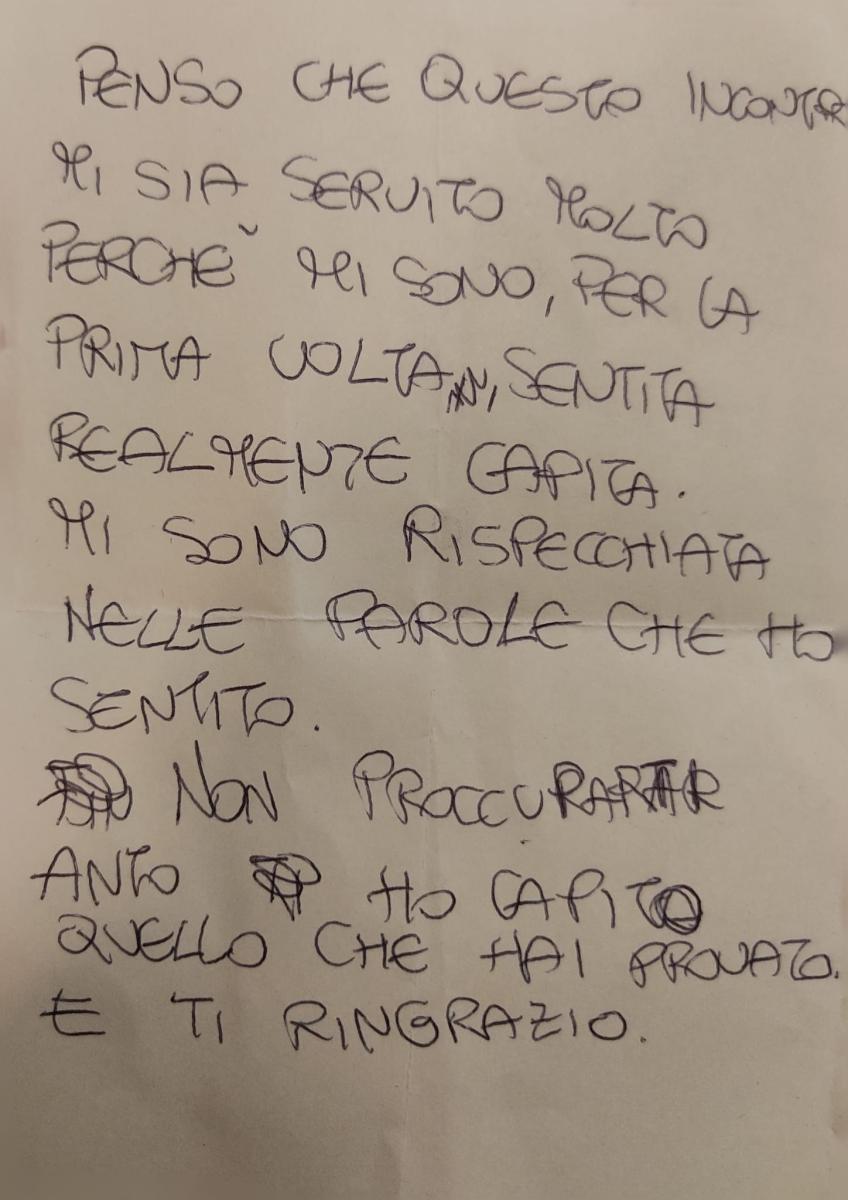 PENSO CHE QUESTO INCONTR
MI SIA SERVITO MOLTO
PERCHÈ MI SONO, PER LA
PRIMA VOLTA, SENTITA
REALMENTE CAPITA.
MI SONO RISPECCHIATA
NELLE PAROLE CHE HO
SENTITO.
NON
ANTO HO CAPITO
QUELLO CHE HAI PROVATO.
E TI RINGRAZIO.